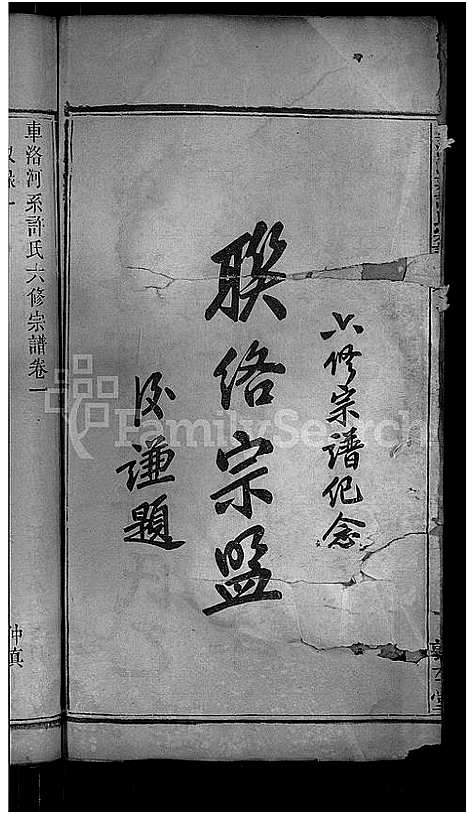 六修宗譜紀念
聯絡宗盟
謙題
車洛河系許氏六修宗譜卷一
仲真
FamilySearch